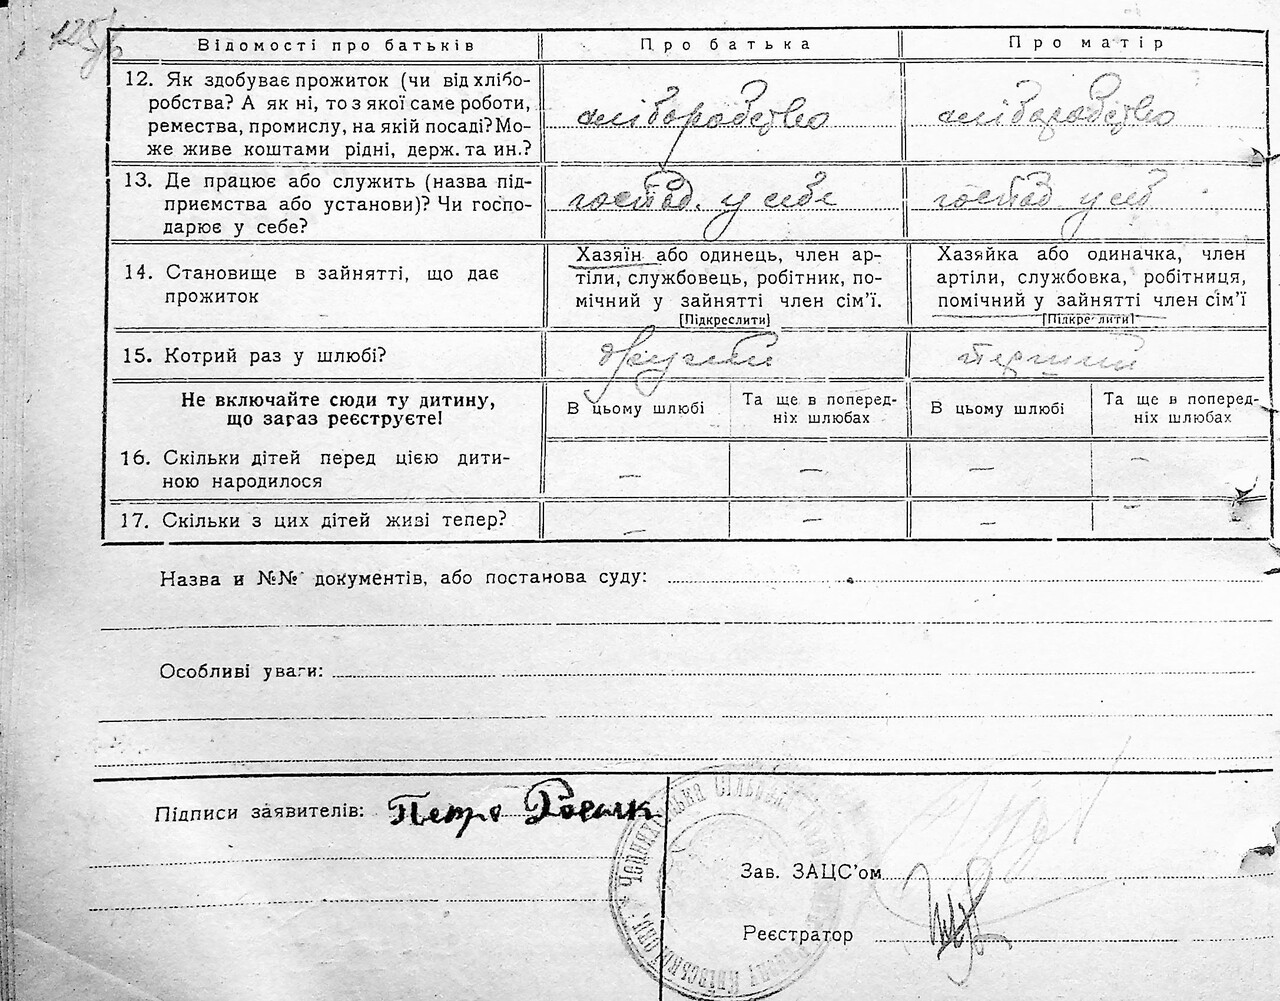 Відомості про батьків
Про батька
Про матір
12. Як здобуває прожиток (чи від хлібо-
робства? А як ні, то з якої саме роботи,
ремества, промислу, на якій посаді? Мо-
же живе коштами рідні, держ. та ин.?
хліборобство
хліборобство
13. Де працює або служить (назва під-
приємства або установи)? Чи госпо-
дарює у себе?
господ. у себе
господ. у себ
14. Становище в зайнятті, що дає
прожиток
Хазяїн або одинець, член ар-
тіли, службовець, робітник, по-
мічний у зайнятті член сім'ї.
[Підкреслити]
Хазяйка або одиначка, член
артіли, службовка, робітниця,
помічний у зайнятті член сім'ї
[Підкреслити]
15. Котрий раз у шлюбі?
другий
перший
Не включайте сюди ту дитину,
що зараз реєструєте!
В цьому шлюбі
Та ще в поперед-
ніх шлюбах
В цьому шлюбі
Та ще в поперед-
ніх шлюбах
16. Скільки дітей перед цією дити-
ною народилося
— — — —
17. Скільки з цих дітей живі тепер?
— — — —
Назва и №№ документів, або постанова суду:
Особливі уваги:
Підписи заявителів: Петро
Зав. ЗАЦС'ом
Реєстратор